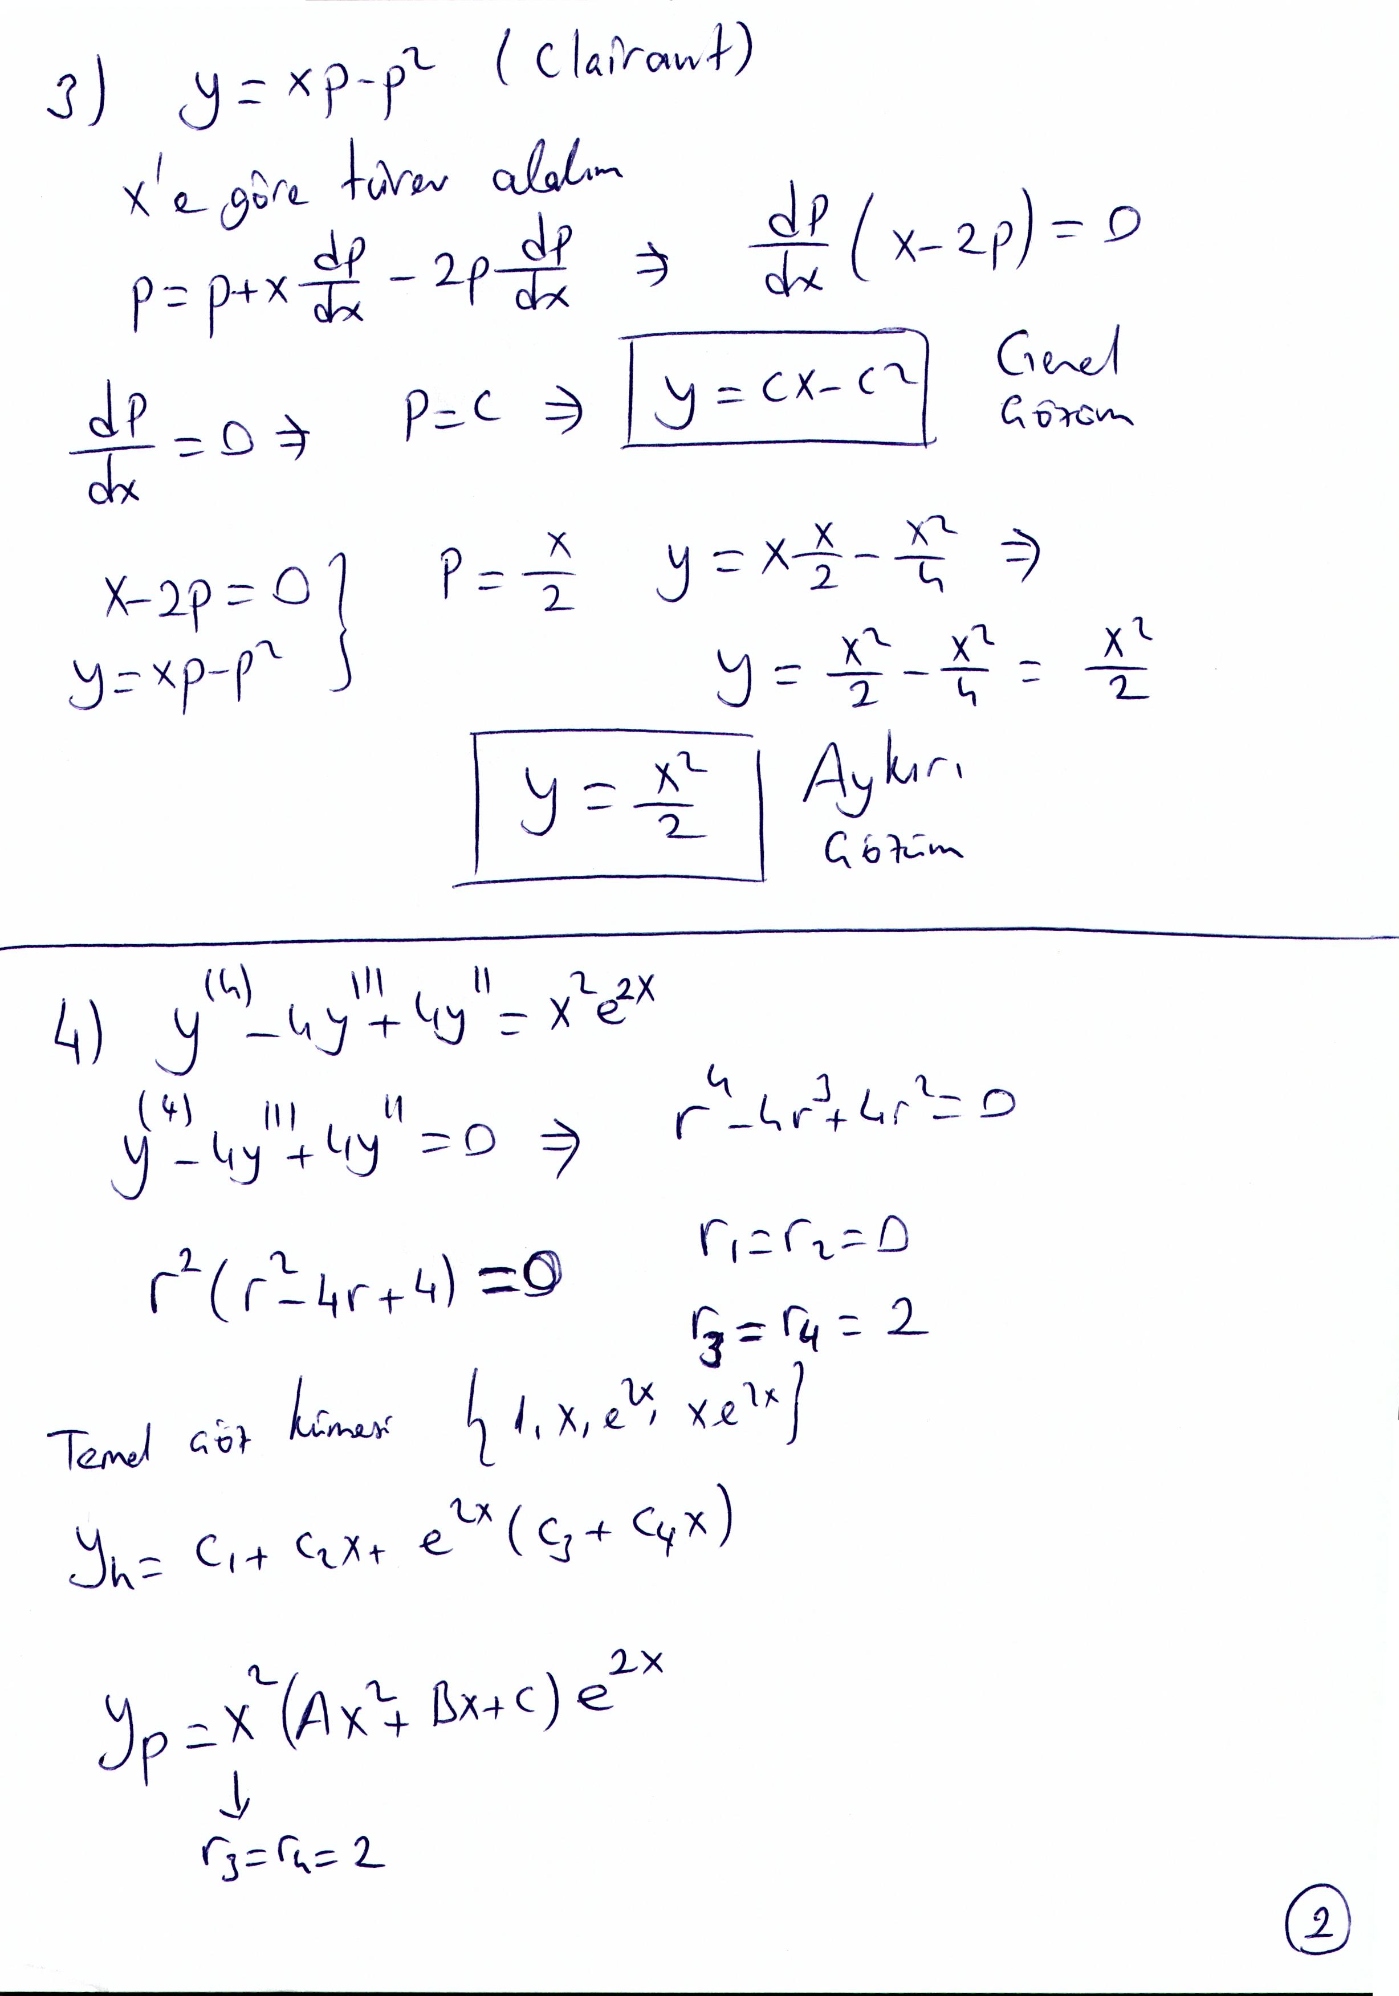 3) y = xp - p² (Clairaut)
x'e göre türev alalım
p = p + x dp/dx - 2p dp/dx ⇒ dp/dx (x - 2p) = 0
dp/dx = 0 ⇒ p = c ⇒ y = cx - c² Genel Çözüm
x - 2p = 0 } p = x/2 y = x x/2 - x²/4 ⇒
y = xp - p² y = x²/2 - x²/4 = x²/2
y = x²/2 Aykırı
Çözüm
4) y⁽⁴⁾ - 4y''' + 4y'' = x²e²ˣ
y⁽⁴⁾ - 4y''' + 4y'' = 0 ⇒ r⁴ - 4r³ + 4r² = 0
r²(r² - 4r + 4) = 0 r₁ = r₂ = 0
r₃ = r₄ = 2
Temel Çöz kümesi {1, x, e²ˣ, xe²ˣ}
yₕ = c₁ + c₂x + e²ˣ(c₃ + c₄x)
yₚ = x²(Ax² + Bx + C)e²ˣ
↓
r₃ = r₄ = 2
2